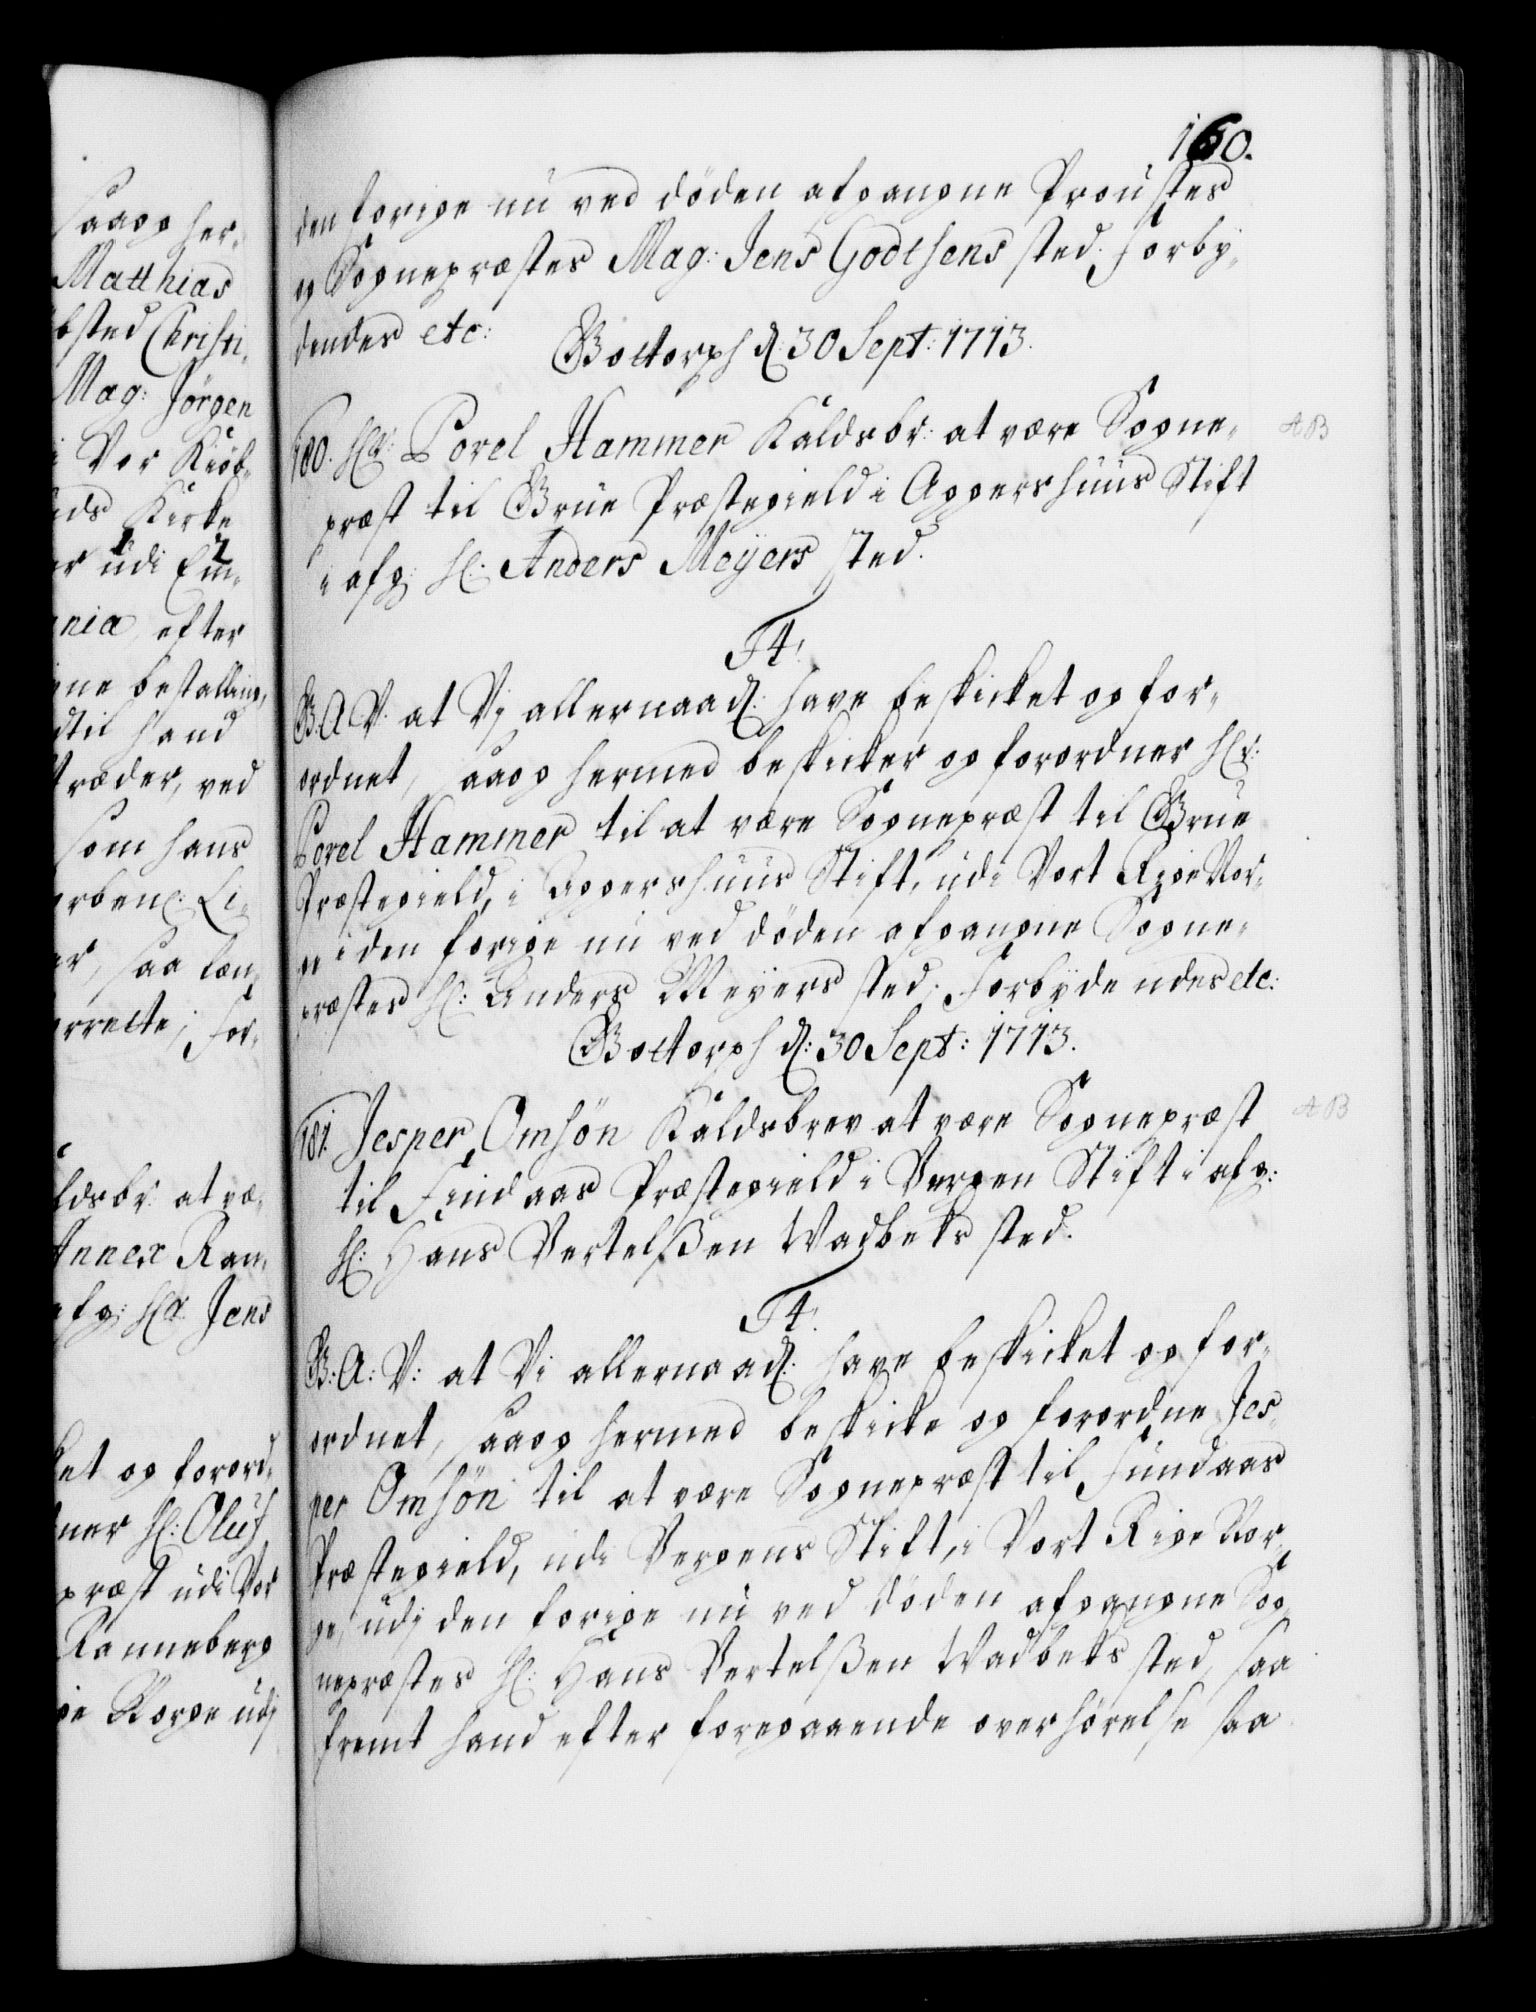 160.
den forige nu ved döden afgangne Proustes
og Sognepræstes Mag: Jens Godtsens sted. Forby,
dendes etc:
Gottorph d: 30 Sept: 1713.
180. Hr: Povel Hammer Kaldsbr: at være Sogne,
præst til Grue Præstegield i Aggershuus Stift
i afg: Hr: Anders Meyers sted.
F4!
G. A. V. at Vj allernaad: have beskicket og for,
ordnet, saaog hermed beskicker og forordner Hr:
Povel Hammer til at være Sognepræst til Grue
Præstegield, i Aggershuus Stift, udi Vort Rige Nor,
ge i den forige nu ved döden afgangne Sogne,
præstes Hr: Anders Meyers sted. Forbydendes etc:
Gottorph d: 30 Sept: 1713.
181. Jesper Omsön Kaldsbrev at være Sognepræst
til Findaas Præstegield i Bergen Stift i afg:
Hr: Hans Bertelßen Wadbeks sted.
F4!
G: A: V: at Vi allernaad: have beskicket og for,
ordnet, saaog hermed beskicke og forordne Jes,
per Omsön til at være Sognepræst til Findaas
Præstegield, udi Bergens Stift, i Vort Rige Nor,
ge, udj den forige nu ved döden afgangne Sog,
nepræstes Hr: Hans Bertelßen Wadbeks sted, saa
fremt hand efter foregaaende overhörelse saa
AB
AB
saaog her,
Matthias
bsted Christi,
Mag: Jörgen
i Vor Kiöb,
ds Kirke
er udi Em,
nia, efter
ne bestalling,
dtil hand
træder, ved
som hans
saa læn,
rrecte, For,
ldsbr: at væ,
Annex Ran,
afg: Hr: Jens
ket og forord,
ner Hr: Oluf
præst udi Vor
Ranneberg
ge Norge udj